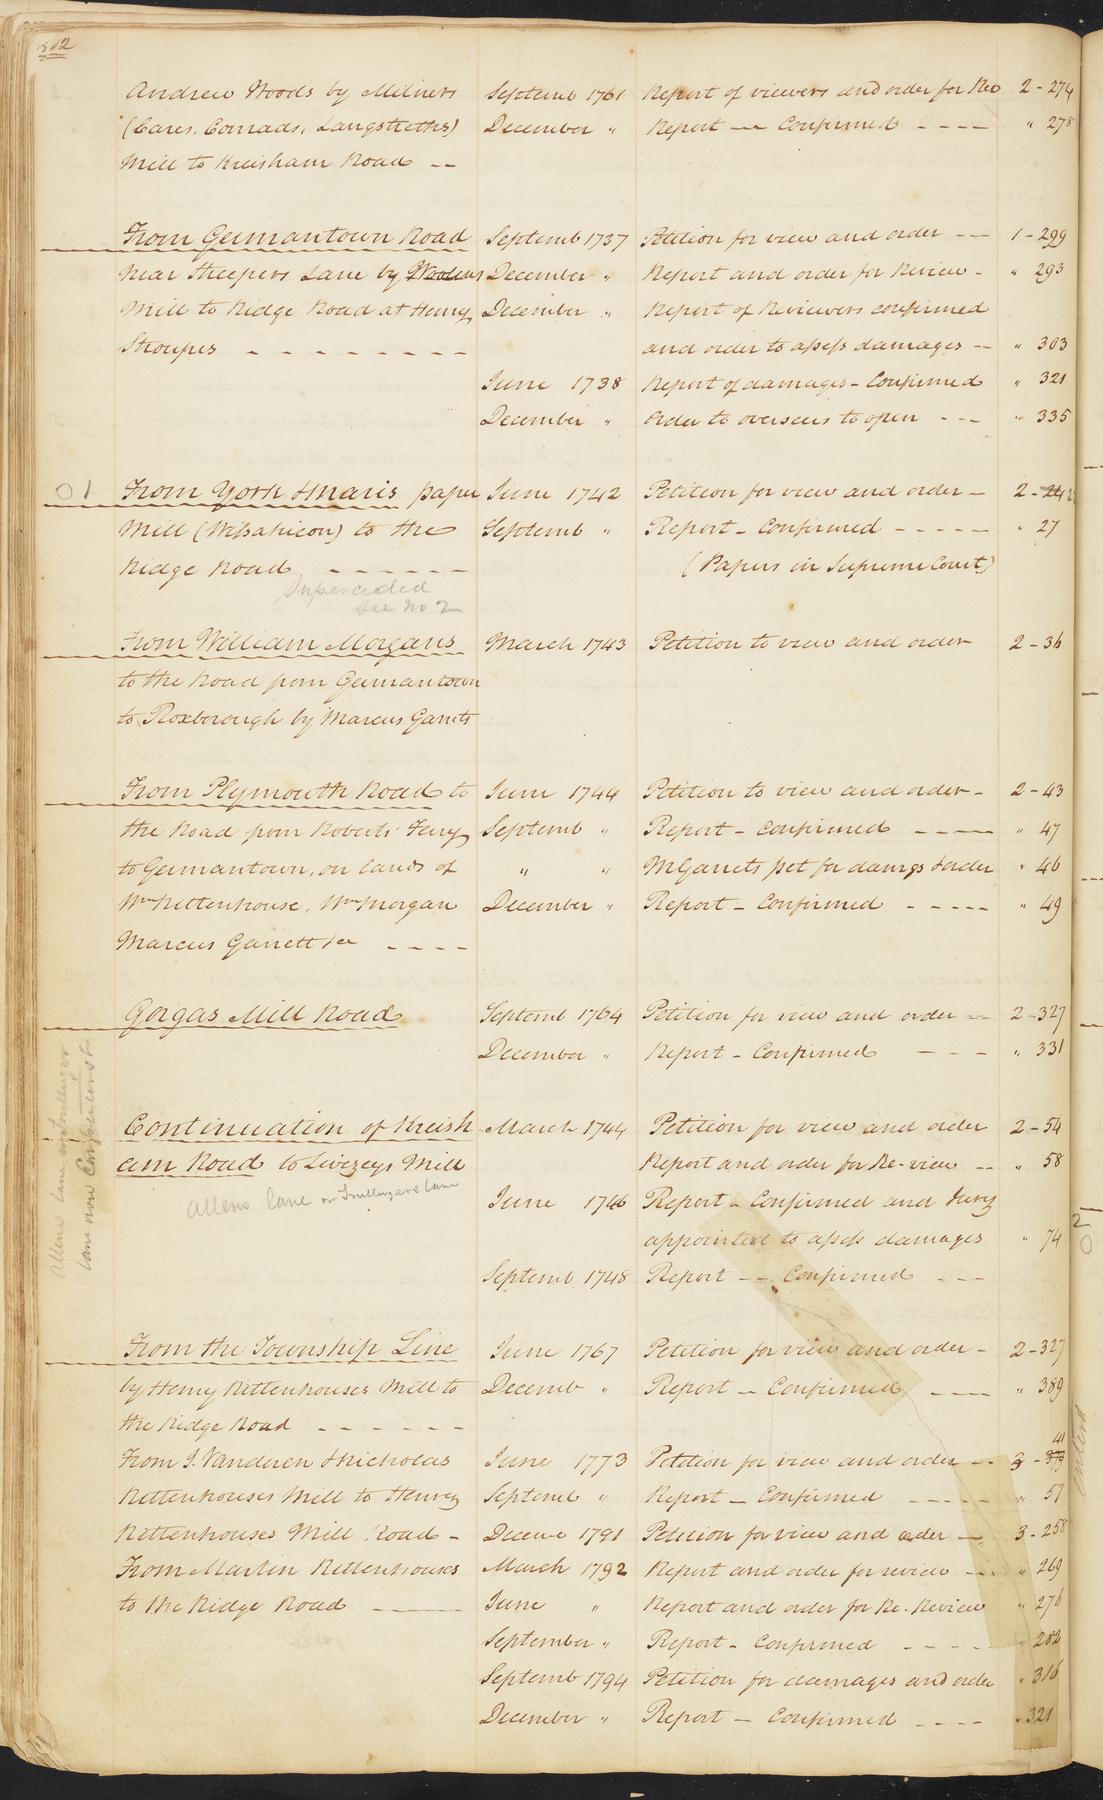 Andrew Woods by Milners Septemb 1761 Report of viewers and order for Rev 2-274
(Cares, Conrads, Langstreths) December " Report — Confirmed ---- " 278
Mill to Kreisham Road --
From Germantown Road Septemb 1737 Petition for view and order --- 1-299
near Steepers Lane by December " Report and order for Review - " 293
Mill to Ridge Road at Henry December " Report of Reviewers confirmed
Stroupes - - - - - - - - - and order to assess damages -- " 303
June 1738 Report of damages - Confirmed " 321
December " Order to overseers to open --- " 335
01 From York & paper June 1742 Petition for view and order - 2-
Mill (Wissahicon) to the Septemb " Report - Confirmed ----- " 27
Ridge Road ------ (Papers in Supreme Court)
Superceded
see No 2
From William Morgans March 1743 Petition to view and order 2-36
to the Road from Germantown
to Roxborough by Marcus Garrits
From Plymouth Road to June 1744 Petition to view and order - 2-43
the Road from Roberts Ferry Septemb " Report - Confirmed ---- " 47
to Germantown, on lands of " " M Garrets pet for damgs & order " 46
Wm Rittenhouse, Wm Morgan December " Report - Confirmed ----- " 49
Marcus Garrett &c ----
Gorgas Mill Road Septemb 1764 Petition for view and order -- 2-327
December " Report - Confirmed --- " 331
Allens Lane or Trullinger
Lane now Carpenters Ln
Continuation of Kreish March 1744 Petition for view and order 2-54
am Road to Livezeys Mill Report and order for Re-view -- " 58
Allens lane or Trullingers Lane June 1746 Report - Confirmed and Jury
appointed to assess damages " 74
Septemb 1748 Report -- Confirmed ---
From the Township Line June 1767 Petition for view and order - 2-327
by Henry Rittenhouses Mill to Decemb " Report - Confirmed --- " 389
the Ridge Road ------
41
From J. Vanderen & Nicholas June 1773 Petition for view and order -- 3 -
Rittenhouses Mill to Henry Septemb " Report - Confirmed ---- " 57
Rittenhouses Mill Road - Decem 1791 Petition for view and order - 3-258
From Martin Rittenhouses March 1792 Report and order for review --- " 269
to the Ridge Road --- June " Report and order for Re-Review " 276
September " Report - Confirmed ---- " 282
Septemb 1794 Petition for damages and order " 316
December " Report - Confirmed ---- " 321